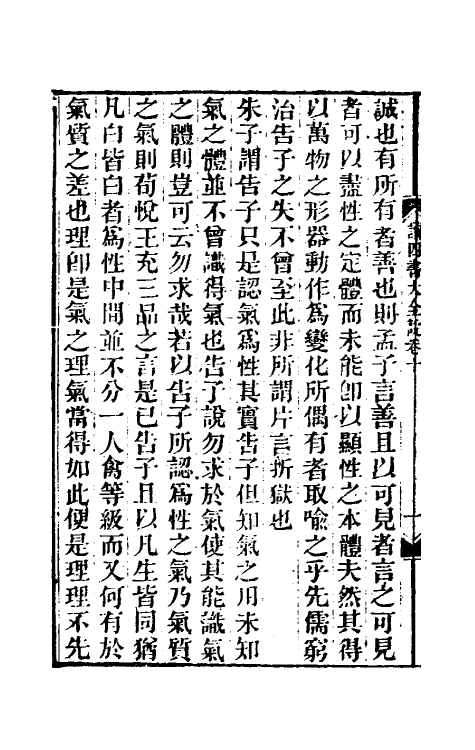 誠也有所有者善也則孟子言善且以可見者言之可見
者可以盡性之定體而未能卽以顯性之本體夫然其得
以萬物之形器動作爲變化所偶有者取喻之乎先儒窮
治告子之失不曾至此非所謂片言折獄也
朱子謂告子只是認氣爲性其實告子但知氣之用未知
氣之體並不曾識得氣也告子說勿求於氣使其能識氣
之體則豈可云勿求哉若以告子所認爲性之氣乃氣質
之氣則荀悅王充三品之言是已告子且以凡生皆同猶
凡白皆白者爲性中間並不分一人禽等級而又何有於
氣質之差也理卽是氣之理氣當得如此便是理理不先
讀四書大全說卷十